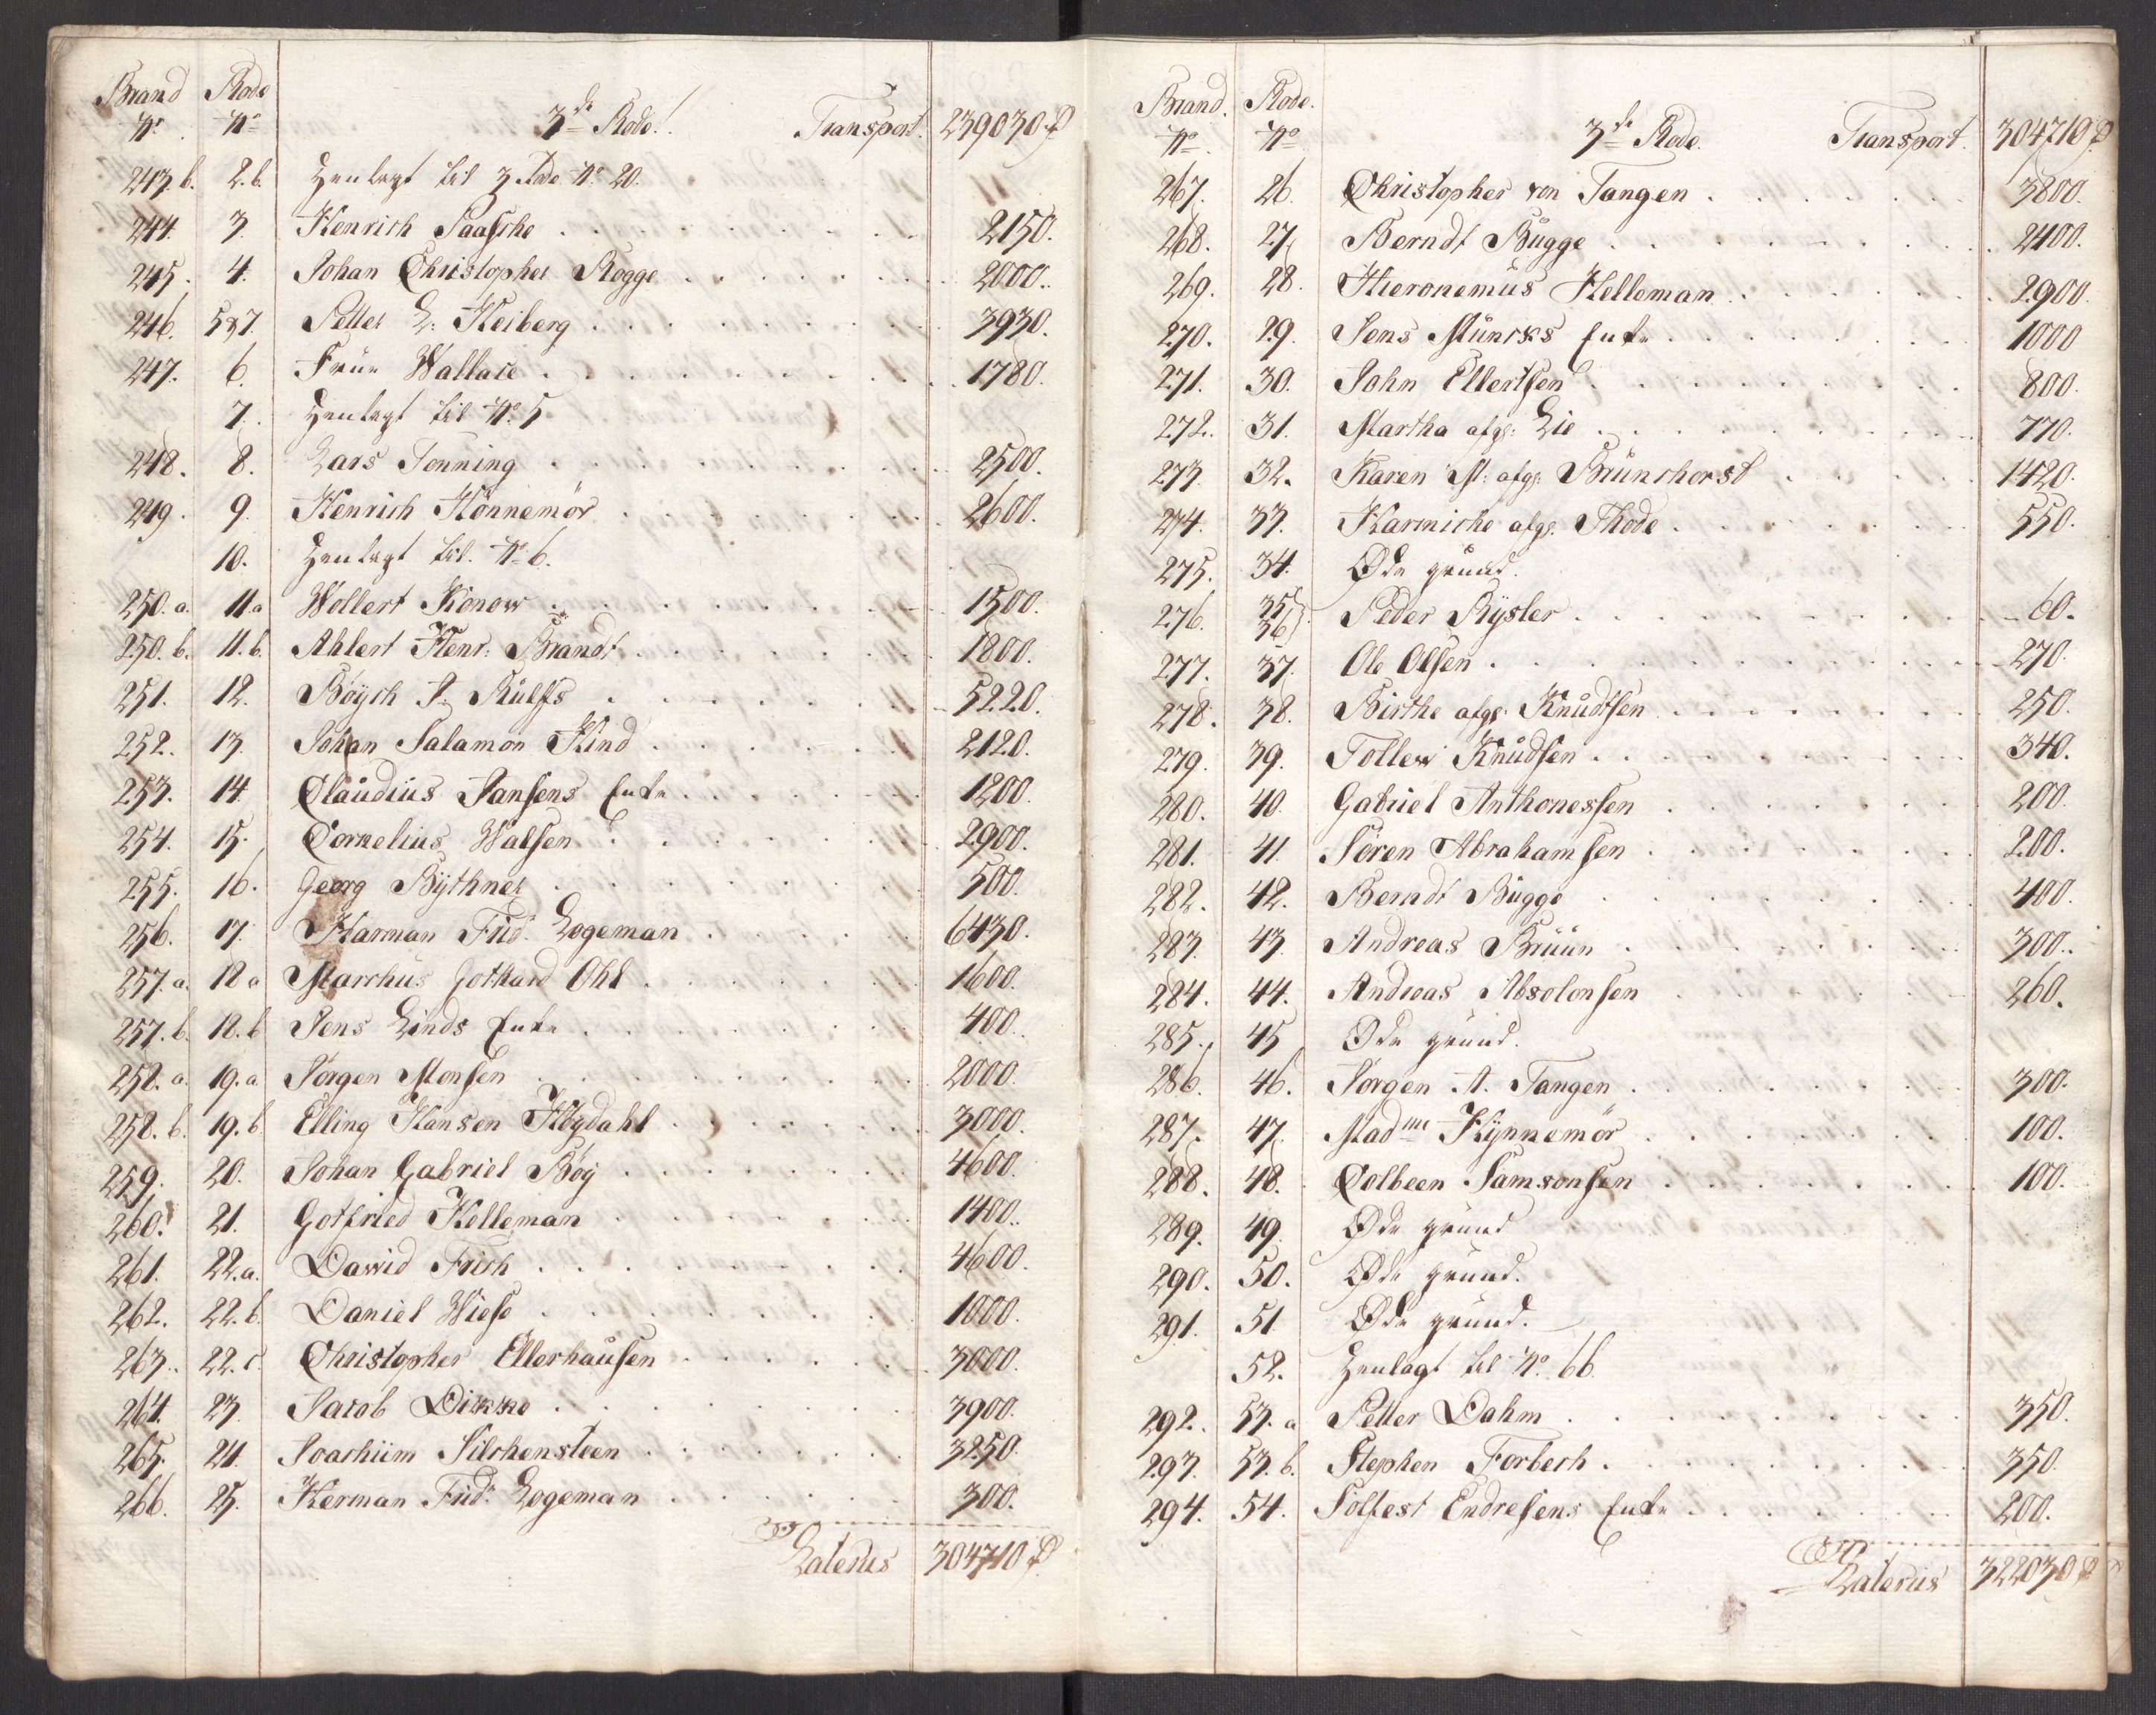 Brand Rode
No. No 3de Rode. Transport. 239030 rd
243.b. 2.b. Henlagt til 3 Rode No 20.
244. 3. Henrich Saasche 2150.
245. 4. Johan Christopher Rogge 2000.
246. 5 & 7. Petter L: Heiberg 3930.
247. 6. Frue Wallace 1780.
7. Henlagt til No 5
248. 8. Lars Tonning 2500.
249. 9. Henrich Hönnemör 2600.
10. Henlagt til No 6.
250.a. 11.a Wollert Konow 1500.
250.b. 11.b. Ahlert Henr: Brandt 1800.
251. 12. Böysch J. Rülfs 5220.
252. 13. Johan Salamon Kind 2120.
253. 14. Claudius Jansens Enke 1200.
254. 15. Cornelius Walsen 2900.
255. 16. Georg Büthner 500.
256. 17. Harman Frid: Logeman 6430.
257.a. 18.a Marchus Gothard Ohl 1600.
257.b. 18.b Jens Linds Enke 400.
258.a. 19.a. Jørgen Monsen 2000.
258.b. 19.b. Elling Hansen Høydahl 3000.
259. 20. Johan Gabriel Bøy 4600.
260. 21. Gotfried Kelleman 1400.
261. 22.a. Dawid Frich 4600.
262. 22.b. Daniel Wiese 1000.
263. 22.c. Christopher Ellerhausen 3000.
264. 23. Jacob Dirkke 3900.
265. 24. Joachiim Silchensteen 3250.
266. 25. Herman Frid: Logeman 300.
Laterus 304710 rd
Brand. Rode.
No. No 3de Rode. Transport. 304710 rd
267. 26. Christopher von Tangen 3800.
268. 27. Berndt Bugge 2400.
269. 28. Hieronemus Kelleman 2900.
270. 29. Jens Muncks Enke 1000
271. 30. John Ellertsen 800.
272. 31. Martha afg: Lie 770.
273. 32. Karen M: afg: Brunchorst 1420.
274. 33. Harmiche afg: Thode 550.
275. 34. Øde grund.
276. 35 36 Peder Rysler 60.
277. 37. Ole Olsen 270.
278. 38. Birthe afg: Knudtsen 250.
279. 39. Tollew Knudsen 340.
280. 40. Gabriel Anthonessen 200
281. 41. Søren Abrahamsen 200.
282. 42. Berndt Bugge 400.
283. 43. Andreas Bruun 300.
284. 44. Andreas Absolonsen 260.
285. 45. Øde grund.
286. 46. Jørgen A. Tangen 300.
287. 47. Madme Hynnemör 100.
288. 48. Colbeen Samsonsen 100.
289. 49. Øde grund
290. 50. Øde grund.
291. 51. Øde grund.
52. Henlagt til No 66.
292. 53.a Petter Dahm 350.
293. 53.b. Stephen Forbech 350.
294. 54. Solfest Endresens Enke 200.
Laterus 322030 rd